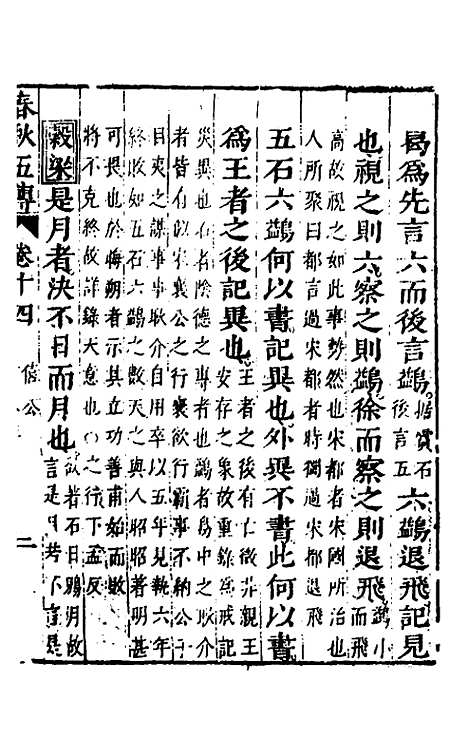 曷爲先言六而後言鷁
据霣石
後言五
六鷁退飛記見
也視之則六察之則鷁徐而察之則退飛
鷁小
而飛
高故視之如此事勢然也宋都者宋國所治也
人所聚曰都言過宋都者時獨過宋都退飛
五石六鷁何以書記異也外異不書此何以書
爲王者之後記異也
王者之後有亡徵非親王
安存之象故重錄爲戒記
災異也石者陰德之專者也鷁者鳥中之耿介
者皆有似宋襄公之行襄欲行霸事不納公子
目夷之謀事事耿介自用卒以五年見執六年
終敗如五石六鷁之數天之與人昭昭著明甚
可畏也於晦朔者示其立功善甫始而敗
將不克終故詳錄天意也○之行下孟反
穀梁是月者決不日而月也
欲著石日鶂月故
言是月若不言是
春秋五傳 卷十四 僖公 二